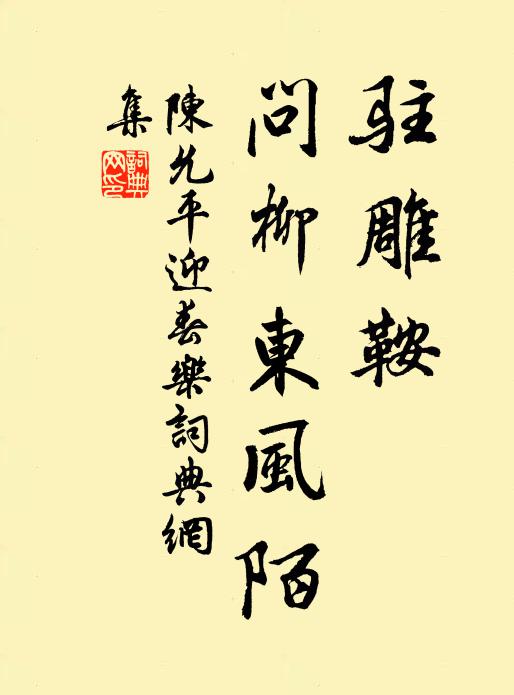 駐雕鞍
問柳東風陌
陳允平迎春樂詞典網
集
詞典網印